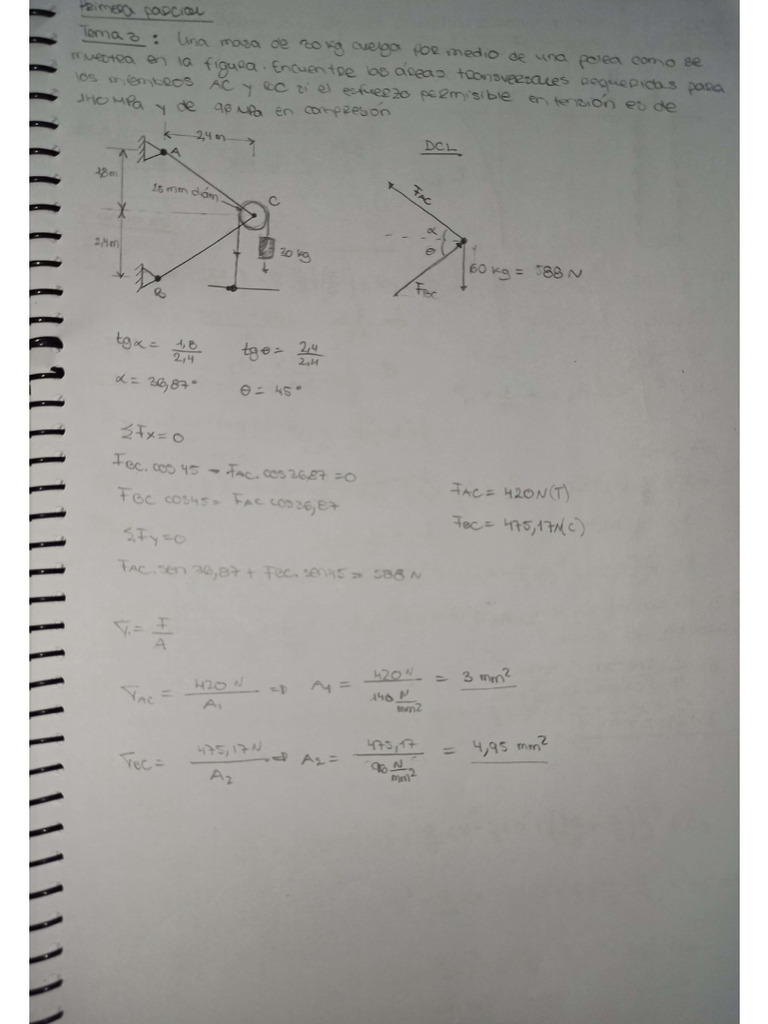 Primera parcial
Tema 3: Una masa de 30 kg cuelga por medio de una polea como se
muestra en la figura. Encuentre las áreas transversales requeridas para
los miembros AC y BC si el esfuerzo permisible en tensión es de
140 MPa y de 96 MPa en compresión
2,4m
DCL
A
1,8m
FAC
25 mm diám
C
α
θ
2,4m
30 kg
60 kg = 588 N
B
FBC
tgα = 1,8/2,4 tgθ = 2,4/2,4
α = 36,87° θ = 45°
ΣFx=0
FBC. cos 45 - FAC. cos 36,87 = 0
FBC cos45 = FAC cos36,87
FAC = 420N(T)
FBC = 475,17N(C)
ΣFy=0
FAC. sen 36,87 + FBC. sen45 = 588 N
σ = F/A
σAC = 420 N/A1 => A1 = 420 N/140 N/mm² = 3 mm²
σBC = 475,17N/A2 => A2 = 475,17/96 N/mm² = 4,95 mm²